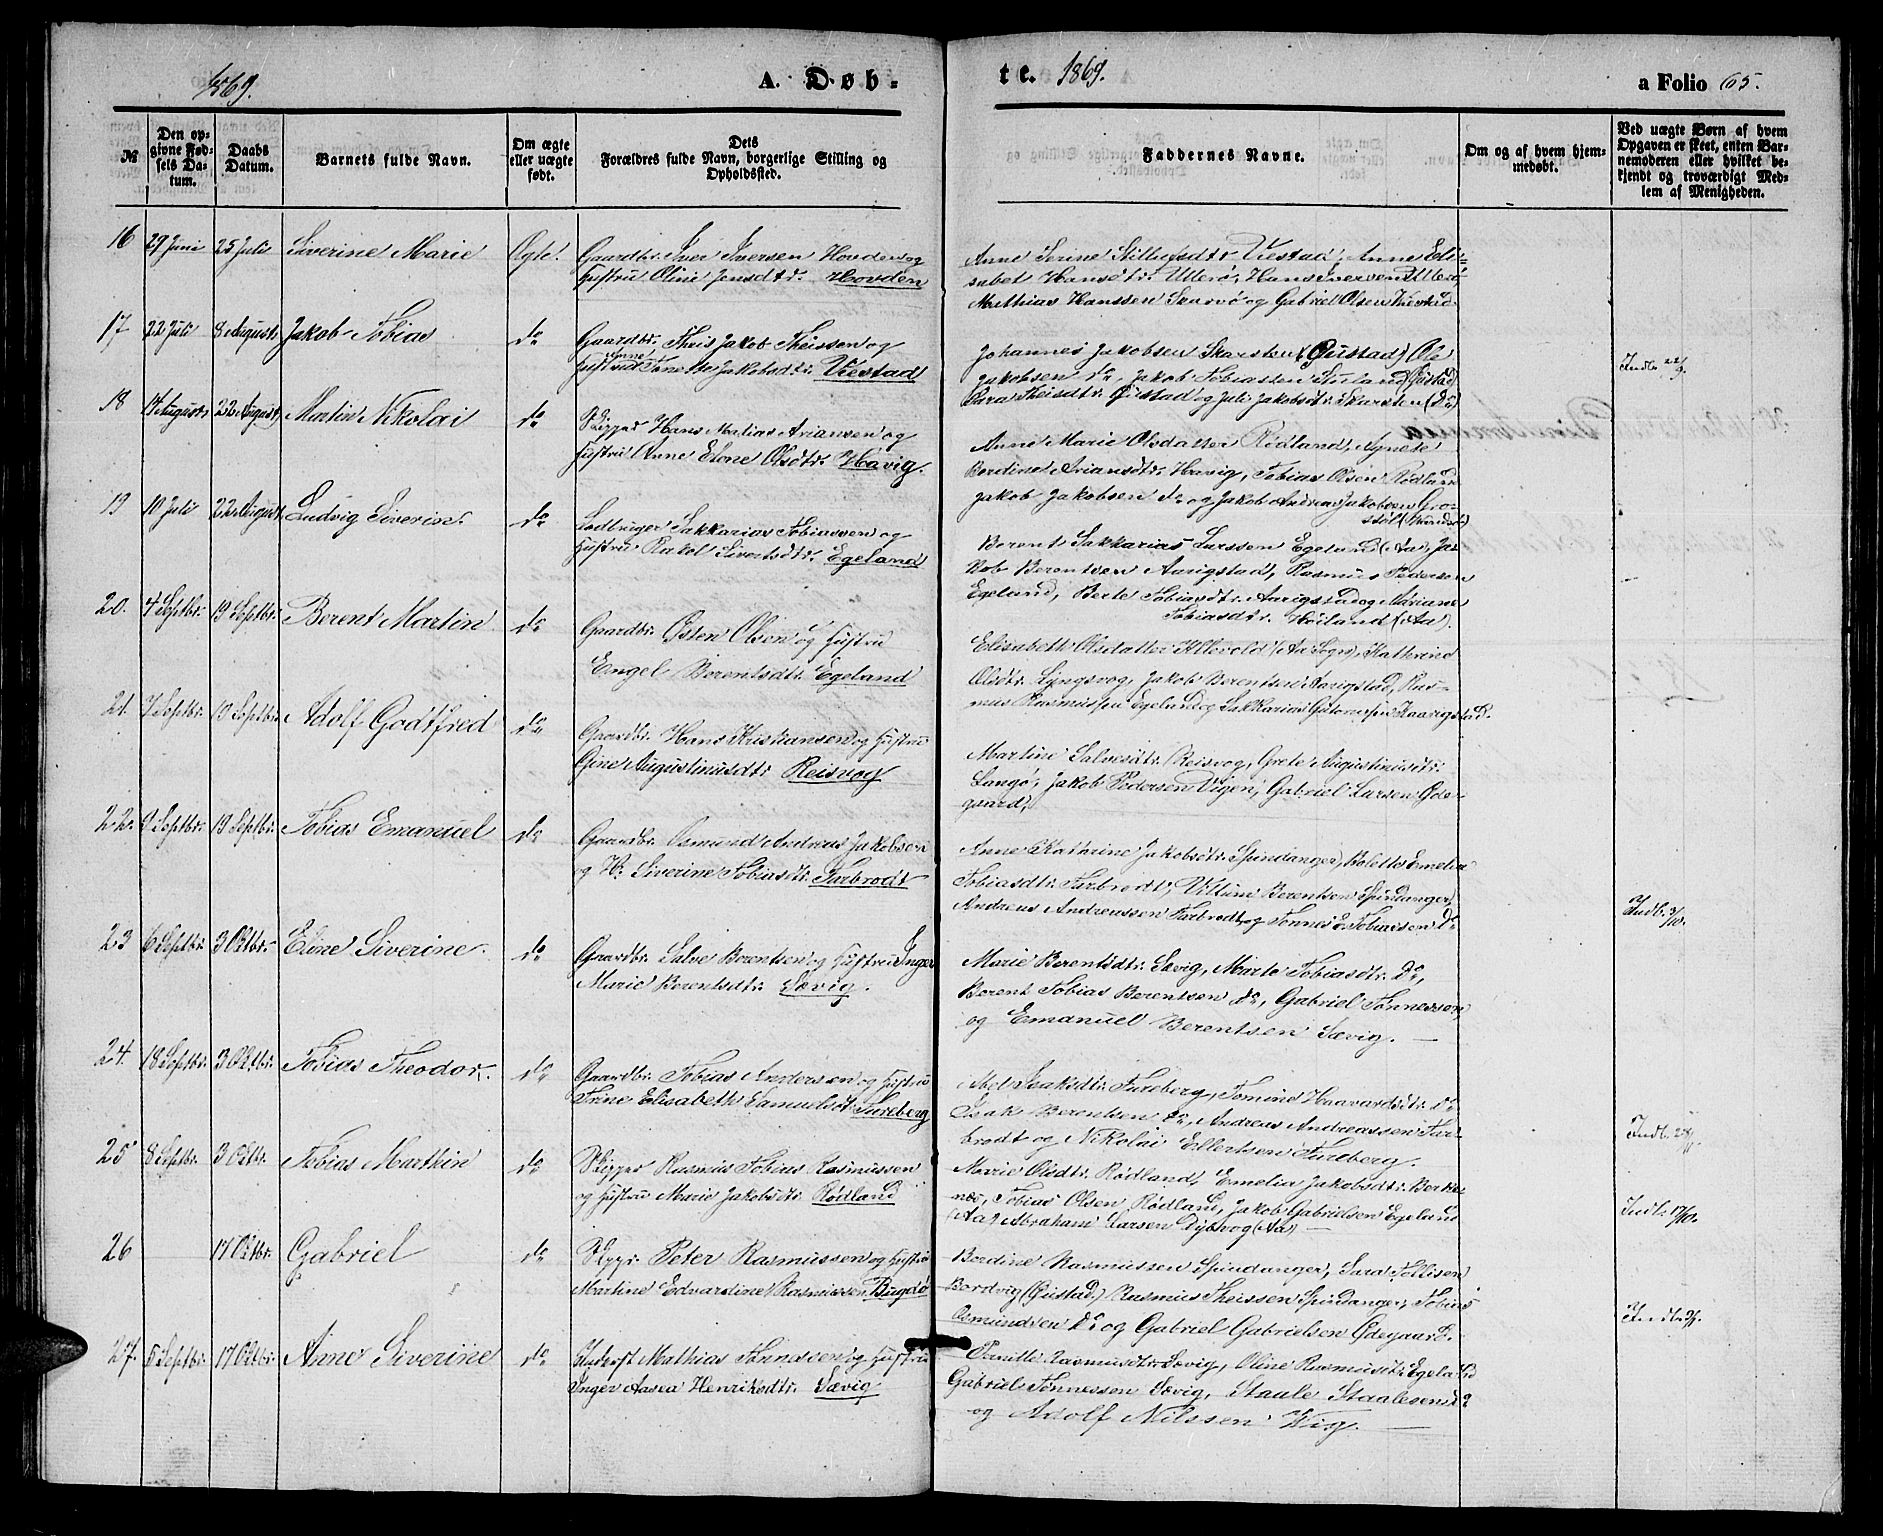 1869.
A. Døb-
№
Den opgivne Fødsels Datum.
Daabs Datum.
Barnets fulde Navn.
Om ægte eller uægte født.
Dets Forældres fulde Navn, borgerlige Stilling og Opholdssted.
te. 1869.
a Folio 65.
Faddernes Navne.
Om og af hvem hjemmedøbt.
Ved uægte Børn af hvem Opgaven er skeet, enten Barnemoderen eller hvilket bekjendt og troværdigt Medlem af Menigheden.
16 29 Juni 25 Juli Siverine Marie Ægte.
Gaardbr. Iver Iversen Hovden og
Hustru Oline Jensdtr. Hovden
Anne Serine Villumsdtr. Viestad, Anne Elisabet Hansdtr. Ullerø, Hans Iversen Ullerø
Mathias Hanssen og Gabriel Olsen Viestad
17 22 Juli 8 August Jakob Tobias do
Gaardbr. Theis Jakob Theissen og
Hustru Anne Tonette Jakobsdtr. Viestad
Johannes Jakobsen Skarsten (Gustad) Ole
Jakobsen do, Jakob Tobiassen (Gustad)
Sara Theisdtr. Gustad og Juli Jakobsdtr. Skarsten (Do)
Indb. 22/9.
18 14 August 22 August Martin Nikolai do
Skipper Hans Matias Ariansen og
Hustru Anne Elene Olsdtr. Havig.
Anne Marie Olsdatter Rødland, Agnete
Berdine Ariansdtr. Havig, Tobias Olsen Rødland
Jakob Jakobsen do og Jakob Andreas Jakobsen
19 10 Juli 22 August Ludvig Siverin. do
Ladbruger Sakkarias Tobiassen og
Hustru Rakel Sivertsdtr. Egeland
Berent Sakkarias Larssen Egeland (Aa), Jakob Berentsen Aarigstad, Rasmus Pedersen
Egeland, Berte Tobiasdtr. Aarigstad og Adriane
Tobiasdtr. Høiland (Aa).
20. 4 Septbr. 19 Septbr. Berent Martin do
Gaardbr. Østen Olsen og Hustru
Engel Berentsdtr. Egeland
Elisabeth Olsdatter (Aa Sogn), Kathrine
Olsdtr. Lyngsvog, Jakob Berentsen Aarigstad, Rasmus Rasmussen Egeland og Sakkarias Kaarigstad.
21. 7 Septbr. 19 Septbr. Adolf Godtfred do
Gaardbr. Hans Kristiansen og Hustru
Gine Augustinusdtr. Reisvog
Martine Salvesdtr. Reisvog, Grete Augustinusdtr.
Langø, Jakob Pedersen Vigen, Gabriel Larsen Ødegaard,
22. 9 Septbr. 19 Septbr. Tobias Emanuel do
Gaardbr. Osmund Andreas Jakobsen
og H. Siverine Tobiasdtr. Furbrodt
Anne Kathrine Jakobsdtr. Spindanger, Bolette Emelia
Tobiasdtr. Furbrodt, Villum Berentsen Spindanger,
Andreas Andreassen Furbrodt og Tønnes E. Tobiassen Do
Indb. 3/10.
23 6 Septbr. 3 Oktbr. Elene Siverine. do
Gaardbr. Salve Berentsen og Hustru Inger
Marie Berentsdtr. Sævig.
Marie Berentsdtr. Sævig, Marte Tobiasdtr. Do,
Berent Tobias Berentsen do, Gabriel Tønnessen,
og Emanuel Berentsen Sævig.
24. 18 Septbr. 3 Oktbr. Tobias Theodor. do
Gaardbr. Tobias Andersen og Hustru
Trine Elisabeth Samuelsdtr. Fureberg
Abel Isaksdtr. Fureberg, Tomine Haavardsdtr. do
Isak Berentsen do, Andreas Andreassen Furbrodt og Nikolai Ellertsen Fureberg.
25 8 Septbr. 3 Oktbr. Tobias Marthin do
Skipper Rasmus Tobias Rasmussen
og Hustru Marie Jakobsdtr. Rødland
Marie Olsdtr. Rødland, Emelia Jakobsdtr. Berkenes, Tobias Olsen Rødland, Jakob Gabrielsen Egeland
(Aa) Abraham Larsen Dybvog (Aa)
Indb. 17/10.
26 17 Oktbr. Gabriel do
Skippr. Peter Rasmussen og Hustru
Martine Edvardine Rasmussen Bugdø
Berdine Rasmussen Spindanger, Sara Tollisen
Bordvig (Gustad) Rasmus Theissen Spindanger, Tobias
Osmundsen Do og Gabriel Gabrielsen Ødegaard.
27. 5 Septbr. 17 Oktbr. Anne Siverine do
Mathias Tønnessen og Hustru
Inger Aasea Henriksdtr. Sævig
Pernille Rasmusdtr. Sævig, Oline Rasmusdtr. Egeland
Gabriel Tønnessen Sævig, Staale Staalesen do
og Adolf Nilssen Vig.